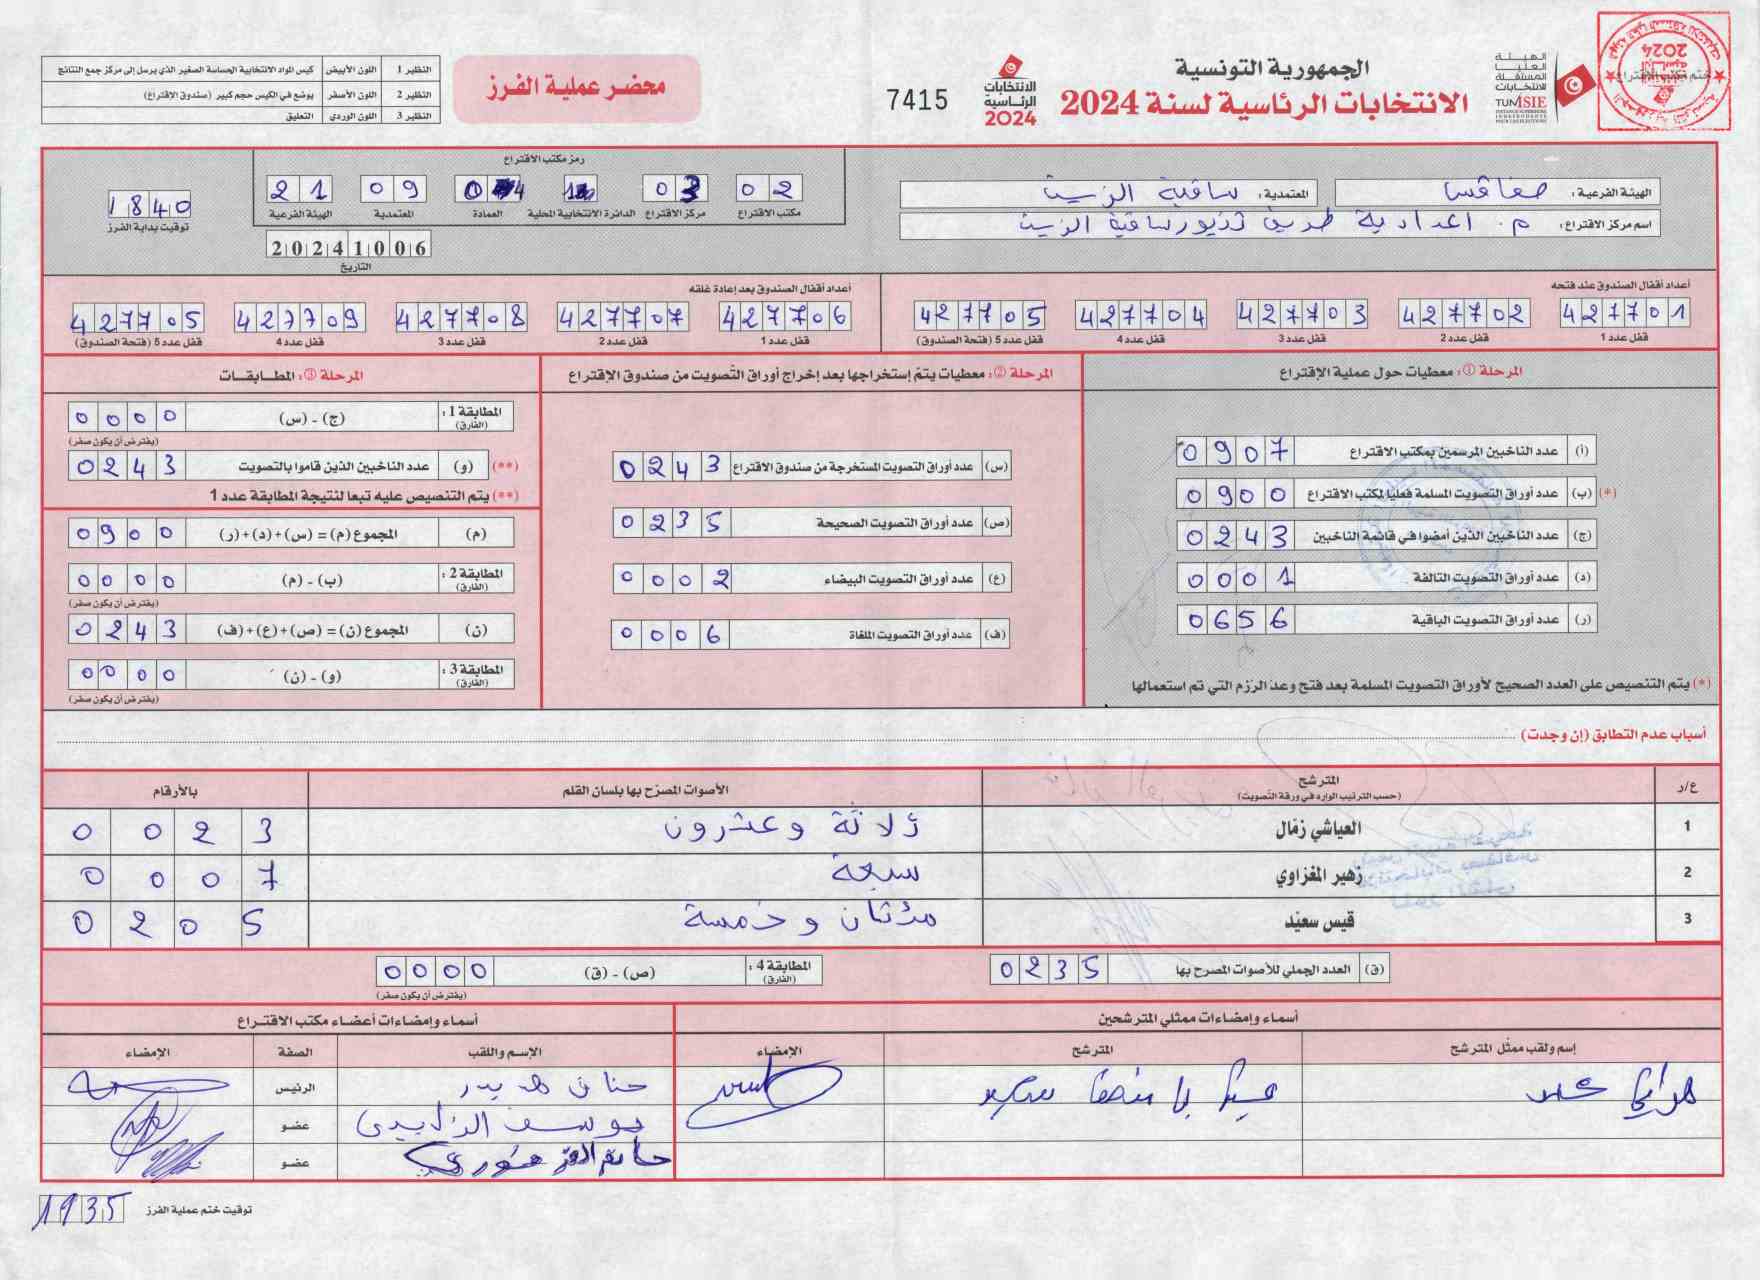 الجمهورية التونسية
الانتخابات الرئاسية لسنة 2024
الهيئة العليا المستقلة للانتخابات
TUNISIE
الانتخابات الرئاسية 2024
7415
محضر عملية الفرز
النظير 1 اللون الأبيض كيس المواد الانتخابية الحساسة الصغير الذي يرسل إلى مركز جمع النتائج
النظير 2 اللون الأصفر يوضع في الكيس حجم كبير (صندوق الاقتراع)
النظير 3 اللون الوردي التعليق
ختم مكتب الاقتراع
الهيئة الفرعية : صفاقس المعتمدية : ساقية الزيت
اسم مركز الاقتراع : م. اعدادية طريق تنيور ساقية الزيت
رمز مكتب الاقتراع
02 03 09 21
مكتب الاقتراع مركز الاقتراع الدائرة الانتخابية المحلية العمادة المعتمدية الهيئة الفرعية
20241006
التاريخ
1840
توقيت بداية الفرز
أعداد أقفال الصندوق عند فتحه
427701 427702 427703 427704 427705
قفل عدد 1 قفل عدد 2 قفل عدد 3 قفل عدد 4 قفل عدد 5 (فتحة الصندوق)
أعداد أقفال الصندوق بعد إعادة غلقه
427706 427707 427708 427709 427705
قفل عدد 1 قفل عدد 2 قفل عدد 3 قفل عدد 4 قفل عدد 5 (فتحة الصندوق)
المرحلة ①: معطيات حول عملية الإقتراع
(أ) عدد الناخبين المرسمين بمكتب الاقتراع 0907
(*) (ب) عدد أوراق التصويت المسلمة فعليا لمكتب الاقتراع 0900
(ج) عدد الناخبين الذين أمضوا في قائمة الناخبين 0243
(د) عدد أوراق التصويت التالفة 0001
(ر) عدد أوراق التصويت الباقية 0656
(*) يتم التنصيص على العدد الصحيح لأوراق التصويت المسلمة بعد فتح وعد الرزم التي تم استعمالها
المرحلة ②: معطيات يتم إستخراجها بعد إخراج أوراق التصويت من صندوق الإقتراع
(س) عدد أوراق التصويت المستخرجة من صندوق الاقتراع 0243
(ص) عدد أوراق التصويت الصحيحة 0235
(ع) عدد أوراق التصويت البيضاء 0002
(ف) عدد أوراق التصويت الملغاة 0006
المرحلة ③: المطابقات
المطابقة 1 : (الفارق) (ج) - (س) 0000
(يفترض أن يكون صفر)
(**) (و) عدد الناخبين الذين قاموا بالتصويت 0243
(**) يتم التنصيص عليه تبعا لنتيجة المطابقة عدد 1
(م) المجموع (م) = (س)+(د)+(ر) 0900
المطابقة 2 : (الفارق) (ب) - (م) 0000
(يفترض أن يكون صفر)
(ن) المجموع (ن) = (ص)+(ع)+(ف) 0243
المطابقة 3 : (الفارق) (و) - (ن) 0000
(يفترض أن يكون صفر)
أسباب عدم التطابق (إن وجدت)
ع/ر المترشح (حسب الترتيب الوارد في ورقة التصويت) الأصوات المصرّح بها بلسان القلم بالأرقام
1 العياشي زمّال ثلاثة وعشرون 0023
2 زهير المغزاوي سبعة 0007
3 قيس سعيّد مئتان و خمسة 0205
(ق) العدد الجملي للأصوات المصرح بها 0235
المطابقة 4 : (الفارق) (ص) - (ق) 0000
(يفترض أن يكون صفر)
أسماء وإمضاءات ممثلي المترشحين
إسم ولقب ممثّل المترشح المترشح الإمضاء
أسماء وإمضاءات أعضاء مكتب الاقتراع
الإسم واللقب الصفة الإمضاء
حنان الرئيس
يوسف عضو
حاتم عضو
توقيت ختم عملية الفرز 1935